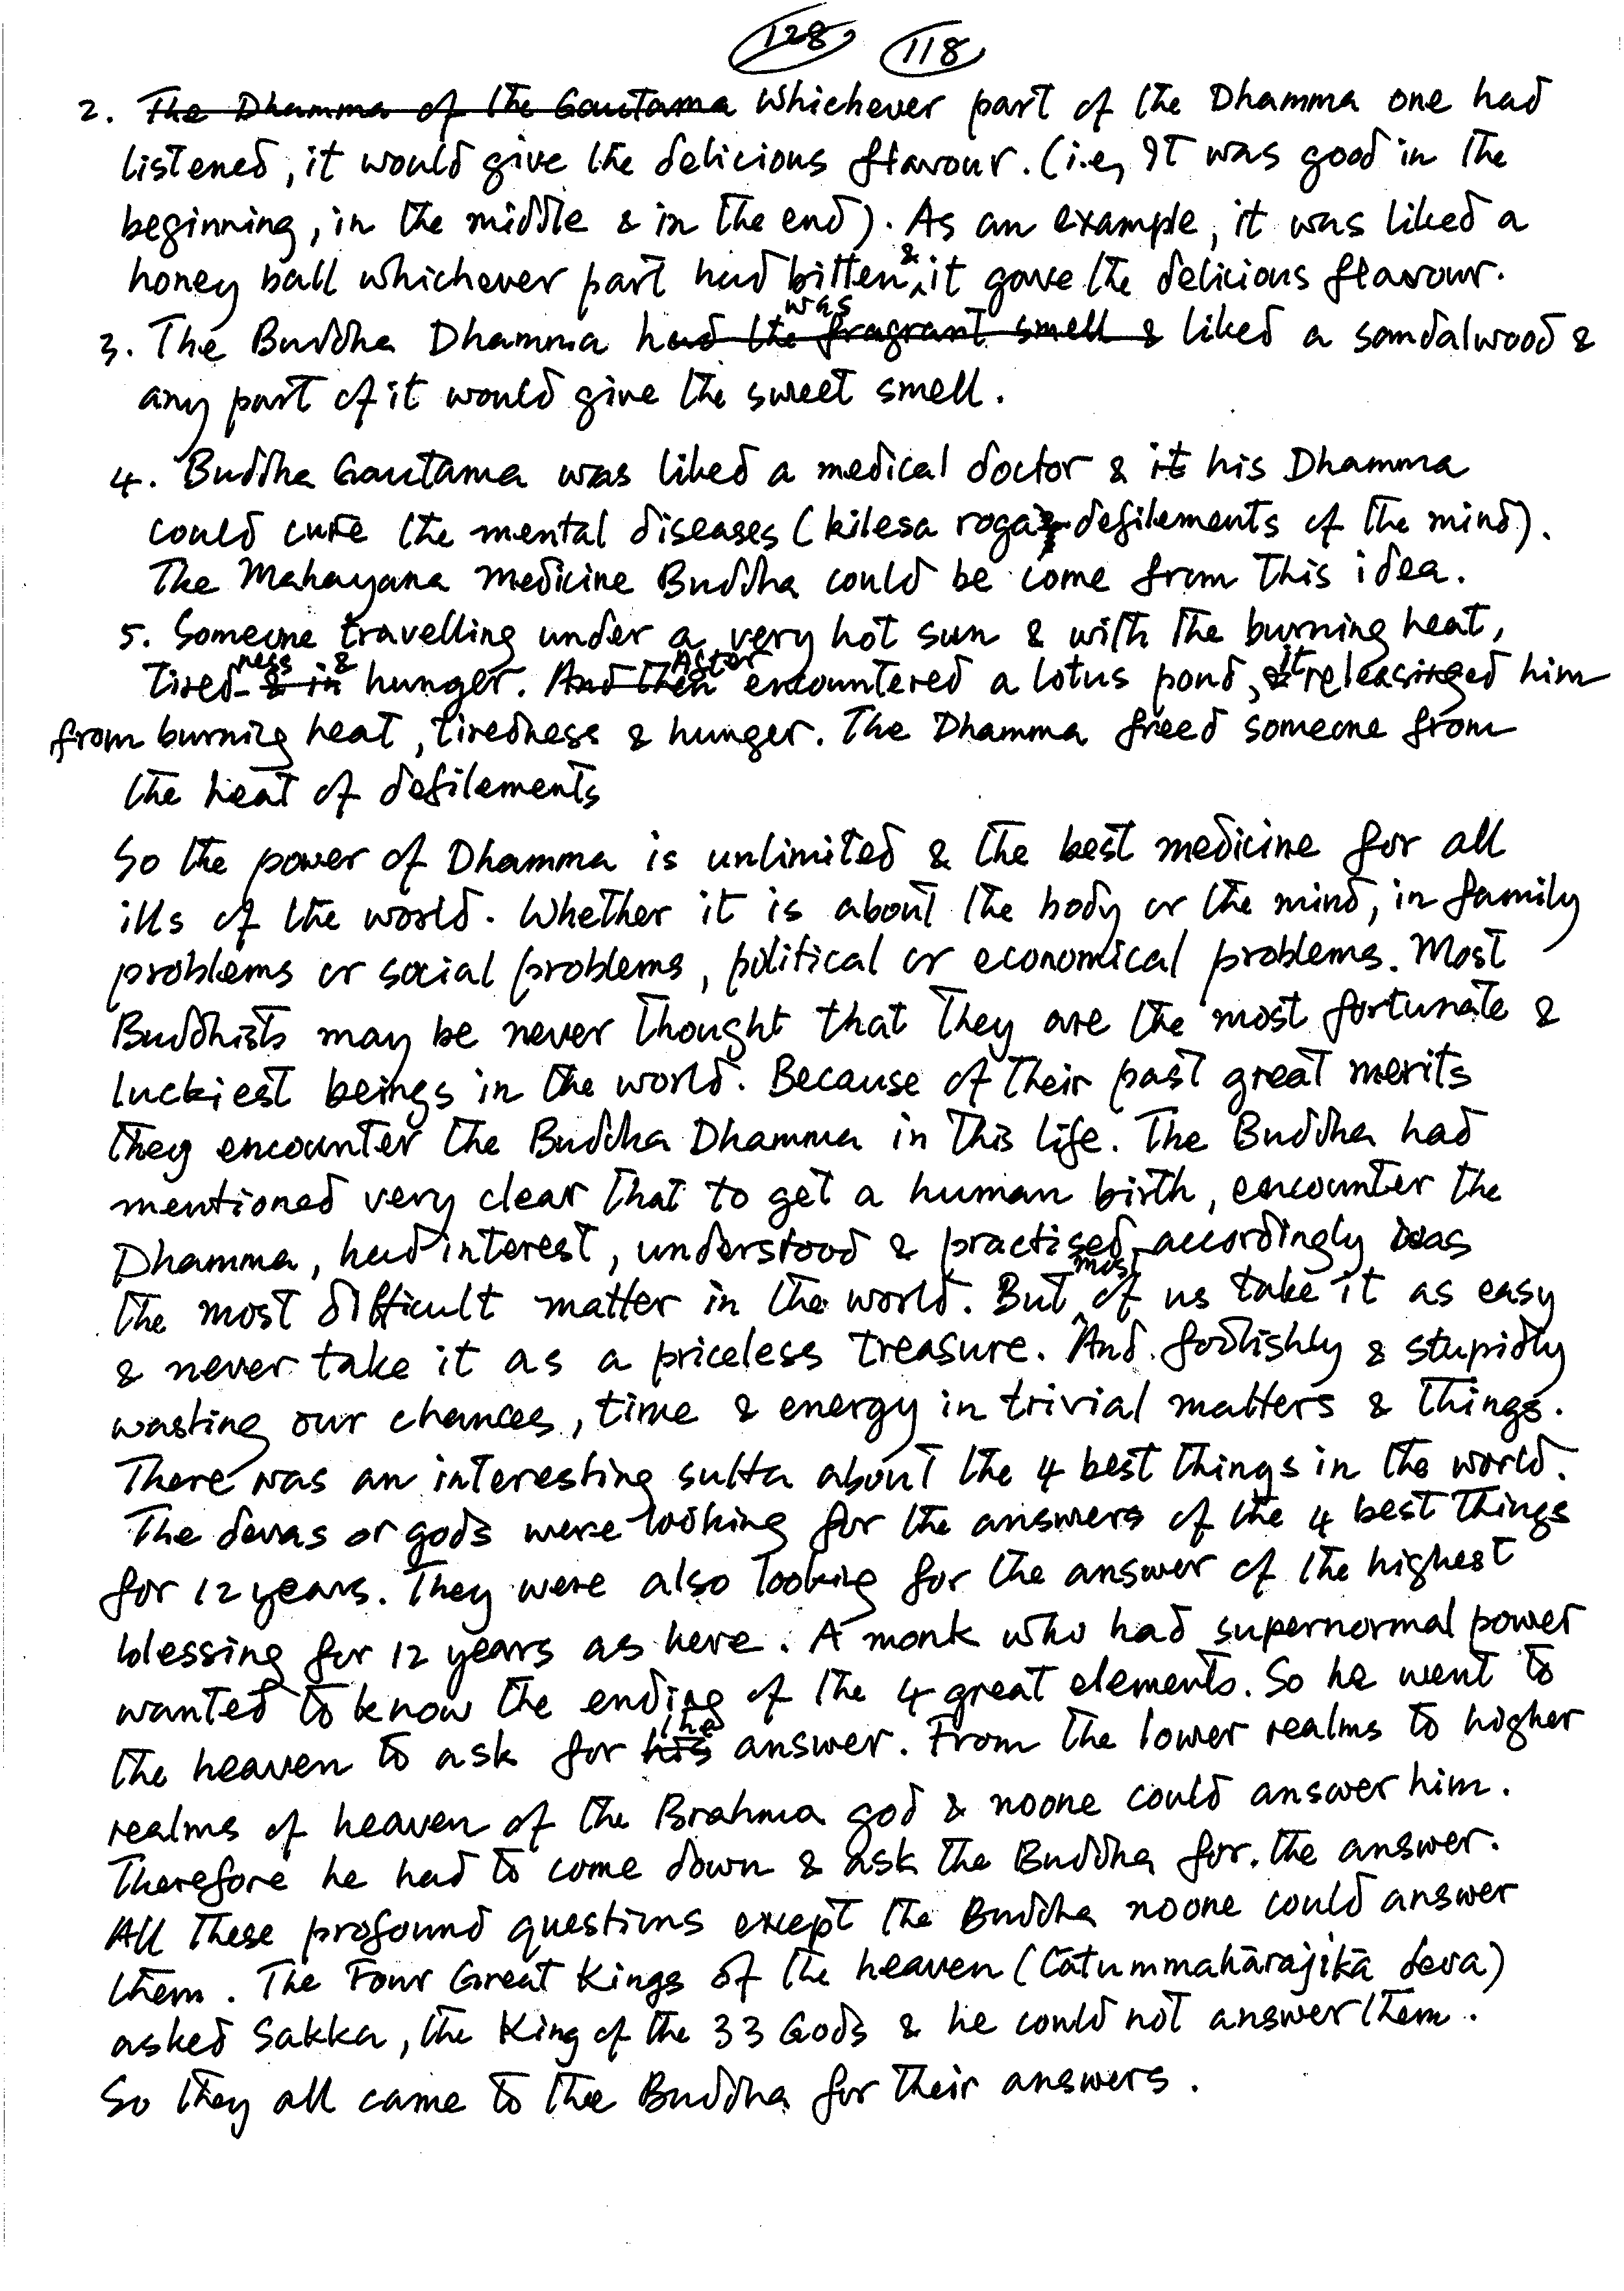 128 118
2. The Dhamma of the Gautama Whichever part of the Dhamma one had
listened, it would give the delicious flavour. (i.e, It was good in the
beginning, in the middle & in the end). As an example, it was liked a
honey ball whichever part had bitten & it gave the delicious flavour.
3. The Buddha Dhamma had the fragrant smell & was liked a sandalwood &
any part of it would give the sweet smell.
4. Buddha Gautama was liked a medical doctor & it his Dhamma
could cure the mental diseases (kilesa roga - defilements of the mind).
The Mahayana Medicine Buddha could be come from this idea.
5. Someone travelling under a very hot sun & with the burning heat,
tiredness & in & hunger. And then After encountered a lotus pond, it released him
from burning heat, tiredness & hunger. The Dhamma freed someone from
the heat of defilements
So the power of Dhamma is unlimited & the best medicine for all
ills of the world. Whether it is about the body or the mind, in family
problems or social problems, political or economical problems. Most
Buddhists may be never thought that they are the most fortunate &
luckiest beings in the world. Because of their past great merits
they encounter the Buddha Dhamma in this life. The Buddha had
mentioned very clear that to get a human birth, encounter the
Dhamma, had interest, understood & practised accordingly was
the most difficult matter in the world. But most of us take it as easy
& never take it as a priceless treasure. And foolishly & stupidly
wasting our chances, time & energy in trivial matters & things.
There was an interesting sutta about the 4 best things in the world.
The devas or gods were looking for the answers of the 4 best things
for 12 years. They were also looking for the answer of the highest
blessing for 12 years as here. A monk who had supernormal power
wanted to know the ending of the 4 great elements. So he went to
the heaven to ask for his the answer. From the lower realms to higher
realms of heaven of the Brahma god & noone could answer him.
Therefore he had to come down & ask the Buddha for the answer.
All these profound questions except the Buddha noone could answer
them. The Four Great Kings of the heaven (Cātummahārājikā deva)
asked Sakka, the King of the 33 Gods & he could not answer them.
So they all came to the Buddha for their answers.